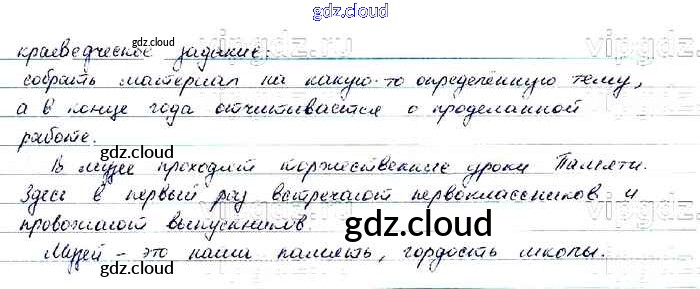 gdz.cloud
краеведческое задание:
gdz.cloud
собрать материал на какую-то определённую тему,
а в конце года отчитывается о проделанной
работе.
gdz.cloud
В музее проходят торжественные уроки Памяти.
Здесь в первый раз встречают первоклассников и
gdz.cloud
провожают выпускников.
gdz.cloud
Музей - это наша память, гордость школы.
gdz.cloud